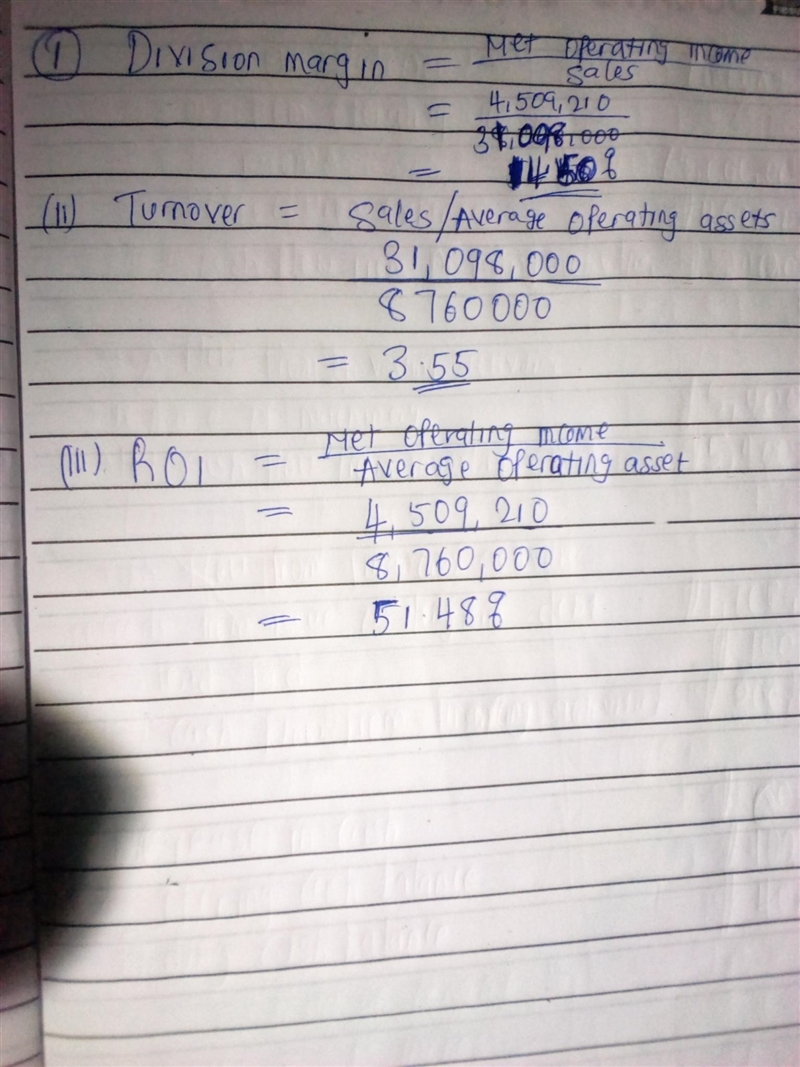 (I) Division margin = Net operating income
Sales
= 4,509,210
31,098,000
= 14.50%
(II) Turnover = Sales/Average operating assets
31,098,000
8760000
= 3.55
(III) ROI = Net operating income
Average operating asset
= 4,509,210
8,760,000
= 51.48%